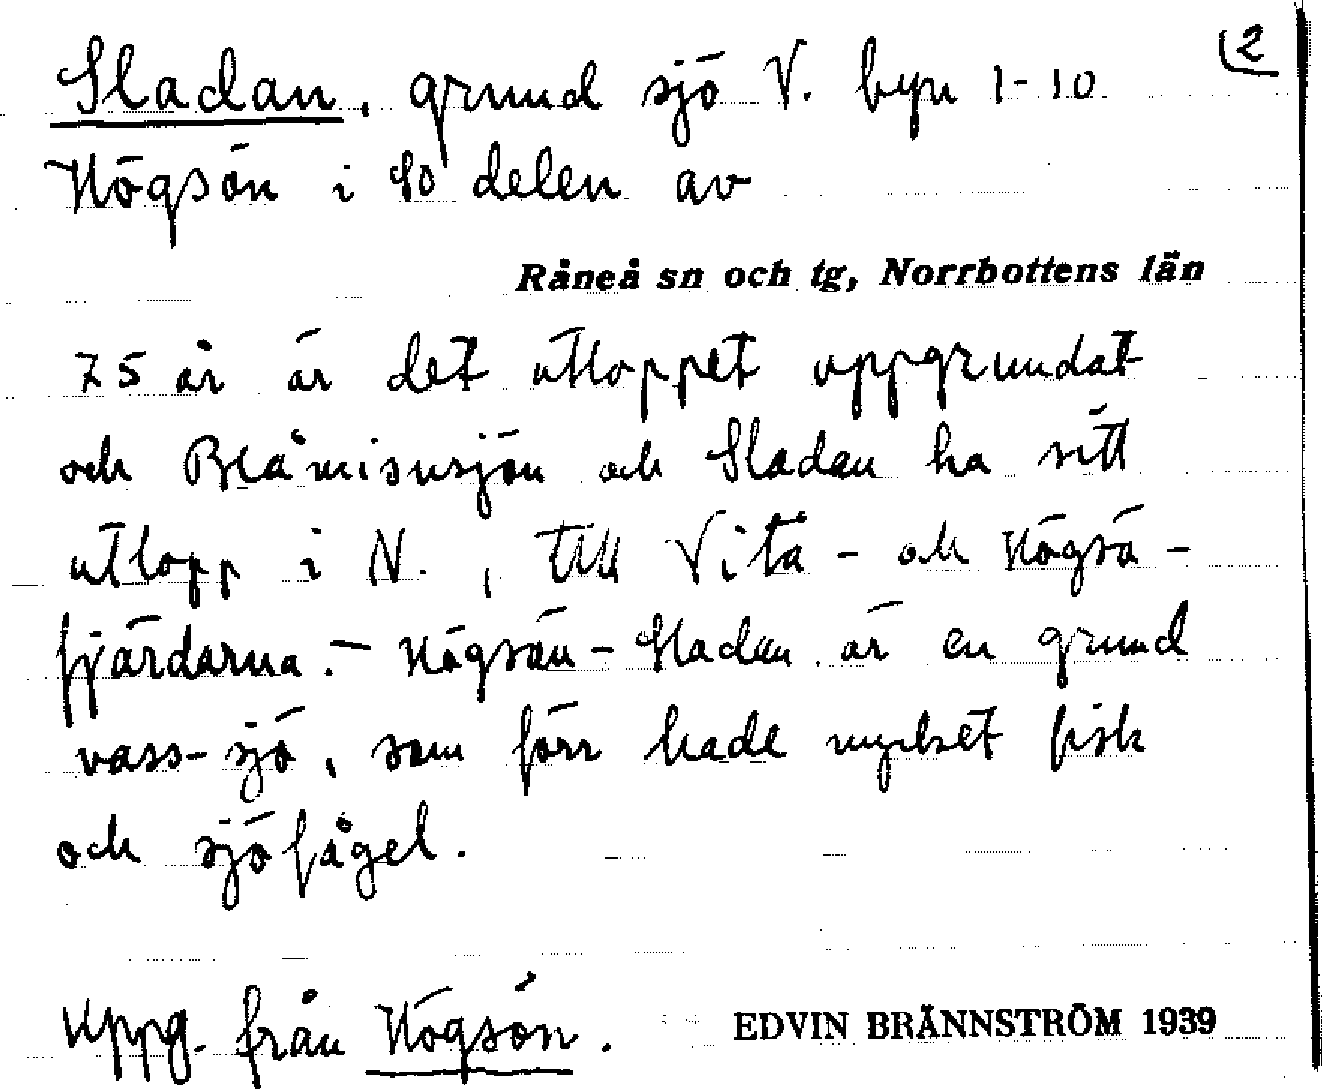 2
Sladan, grund sjö V. byn 1-10
Högsön i SO delen av
Råneå sn och tg, Norrbottens län
75 år är det utloppet uppgrundat
och Blåmisusjön och Sladan ha sitt
utlopp i N., till Vitå- och Högsö-
fjärdarna.- Högsön-Sladan är en grund
vass-sjö, som förr hade mycket fisk
och sjöfågel.
Uppg. från Högsön.
EDVIN BRÄNNSTRÖM 1939